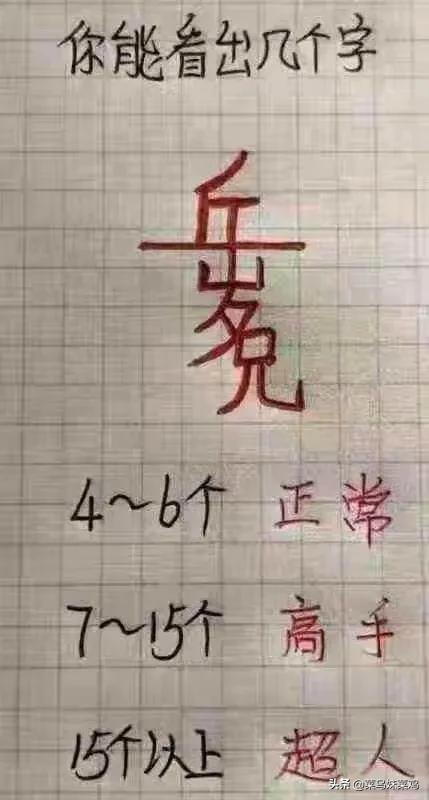 你能看出几个字
4~6个 正常
7~15个 高手
15个以上 超人
头条 @菜鸟妹菜鸡